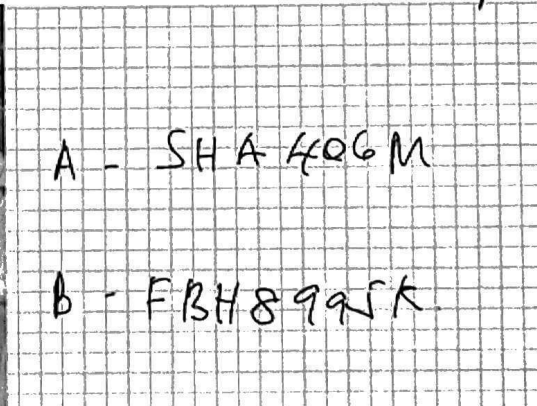 A - SHA 406M
B - FBH8995K